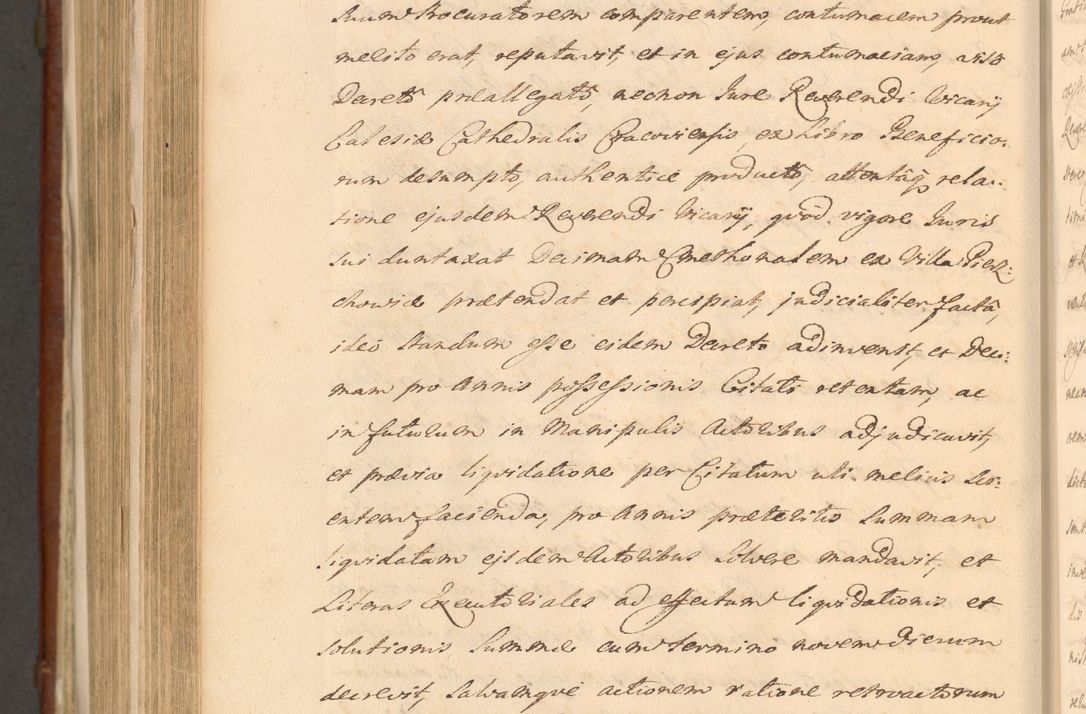 suum Procuratorem comparentem, contumacem prout
melito erat, reputavit, et in ejus contumaciam, viso
Decreto præallegato, necnon Jure Reverendi Vicarij
Ecclesiæ Cathedralis Cracoviensis, ex Libro Beneficio:
rum desumpto, authentice producto, attentaq3 rela:
tione ejusdem Reverendi Vicarij, quod vigore Juris
sui duntaxat Decimam Cmethonalem ex Villa Pierz:
chowice prætendat et percipiat, judicialiter facta,
ideo standum esse eidem Decreto adinvenit, et Deci:
mam pro Annis possessionis Citati retentam, ac
in futurum in Manipulis Actoribus adjudicavit,
et prævia liqvidatione per Citatum uti melius sci:
entem facienda, pro Annis præteritis Summam
liqvidatam ejsdem Actoribus solvere mandavit, et
Literas Executoriales ad effectum liqvidationis et
solutionis Summæ cum termino novem dierum
decrevit, salvamqve actionem ratione retroactorum